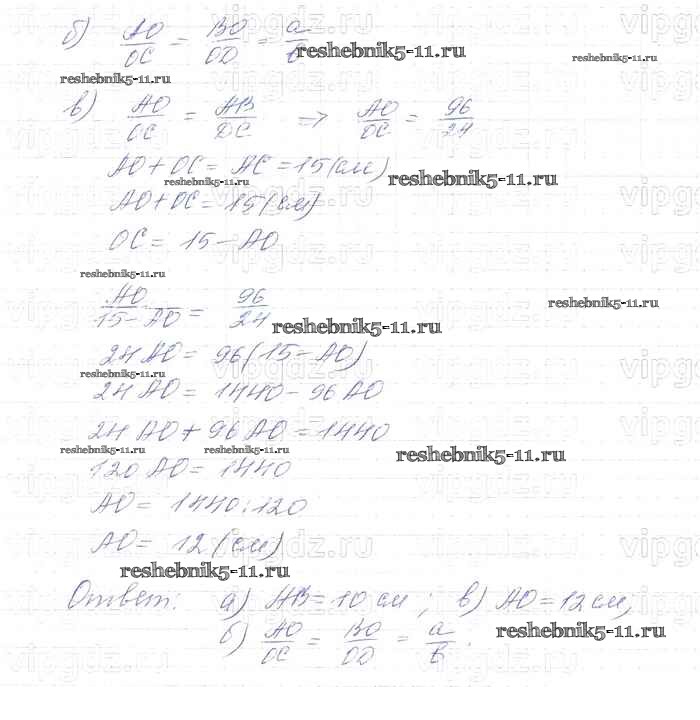 б) AO/OC = BO/OD = a/b reshebnik5-11.ru reshebnik5-11.ru
reshebnik5-11.ru
в) AO/OC = AB/DC => AO/OC = 96/24
AO + OC = AC = 15 (см) reshebnik5-11.ru
reshebnik5-11.ru
AO + OC = 15 (см)
OC = 15 - AO
reshebnik5-11.ru
AO/15 - AO = 96/24 reshebnik5-11.ru
reshebnik5-11.ru
24 AO = 96 (15 - AO)
reshebnik5-11.ru reshebnik5-11.ru
24 AO = 1440 - 96 AO
24 AO + 96 AO = 1440
reshebnik5-11.ru reshebnik5-11.ru reshebnik5-11.ru
120 AO = 1440
AO = 1440 : 120
AO = 12 (см) vipgdz.ru
reshebnik5-11.ru
Ответ: а) AB = 10 см; в) AO = 12 см;
б) AO/OC = BO/OD = a/b. reshebnik5-11.ru